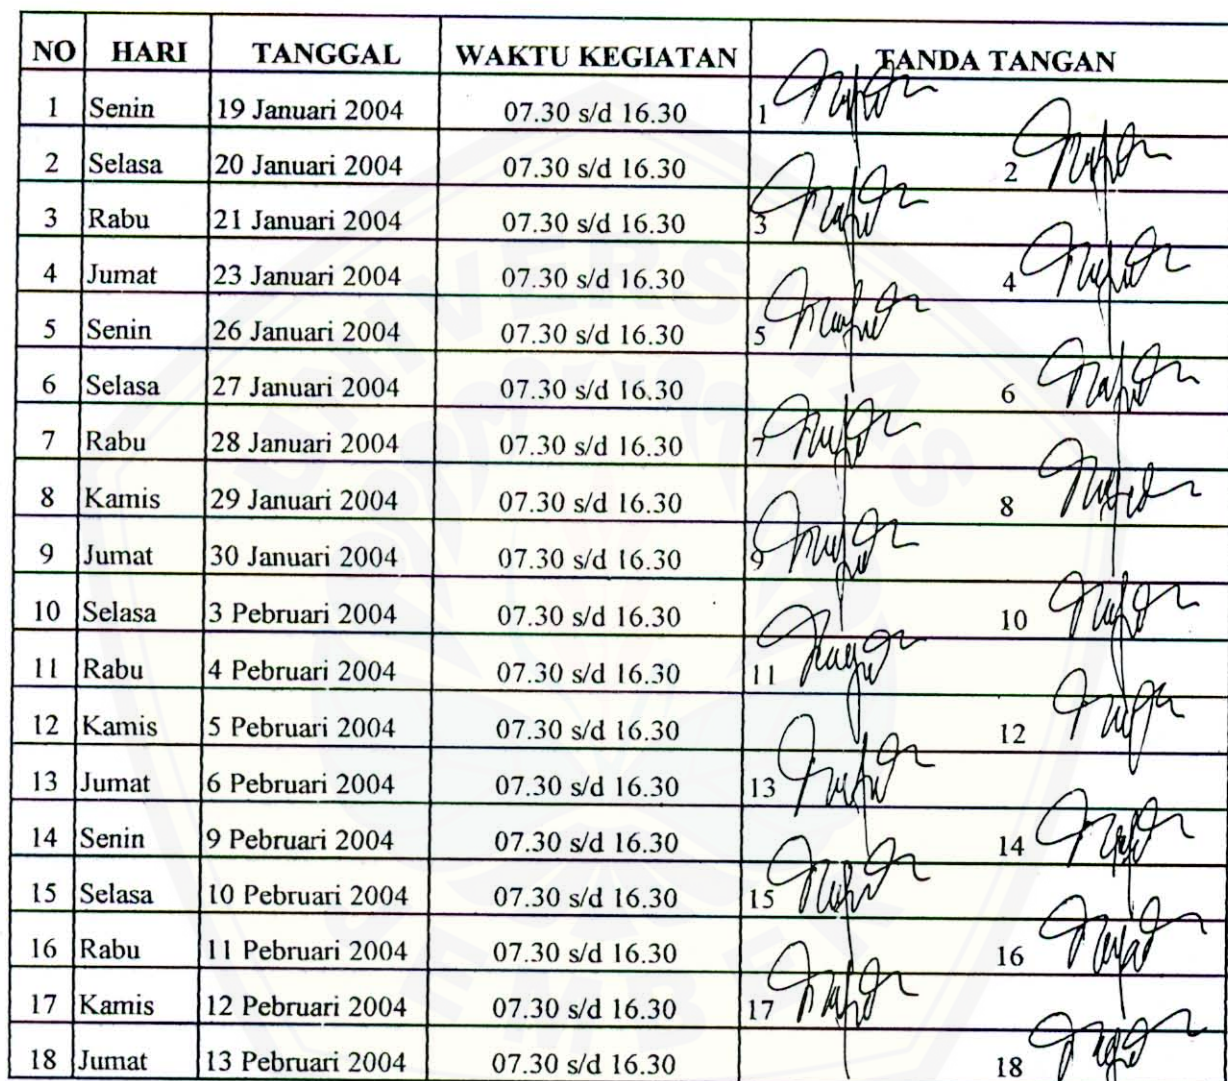 NO HARI TANGGAL WAKTU KEGIATAN TANDA TANGAN
1 Senin 19 Januari 2004 07.30 s/d 16.30 1
2 Selasa 20 Januari 2004 07.30 s/d 16.30 2
3 Rabu 21 Januari 2004 07.30 s/d 16.30 3
4 Jumat 23 Januari 2004 07.30 s/d 16.30 4
5 Senin 26 Januari 2004 07.30 s/d 16.30 5
6 Selasa 27 Januari 2004 07.30 s/d 16.30 6
7 Rabu 28 Januari 2004 07.30 s/d 16.30 7
8 Kamis 29 Januari 2004 07.30 s/d 16.30 8
9 Jumat 30 Januari 2004 07.30 s/d 16.30 9
10 Selasa 3 Pebruari 2004 07.30 s/d 16.30 10
11 Rabu 4 Pebruari 2004 07.30 s/d 16.30 11
12 Kamis 5 Pebruari 2004 07.30 s/d 16.30 12
13 Jumat 6 Pebruari 2004 07.30 s/d 16.30 13
14 Senin 9 Pebruari 2004 07.30 s/d 16.30 14
15 Selasa 10 Pebruari 2004 07.30 s/d 16.30 15
16 Rabu 11 Pebruari 2004 07.30 s/d 16.30 16
17 Kamis 12 Pebruari 2004 07.30 s/d 16.30 17
18 Jumat 13 Pebruari 2004 07.30 s/d 16.30 18
UNIVERSITAS